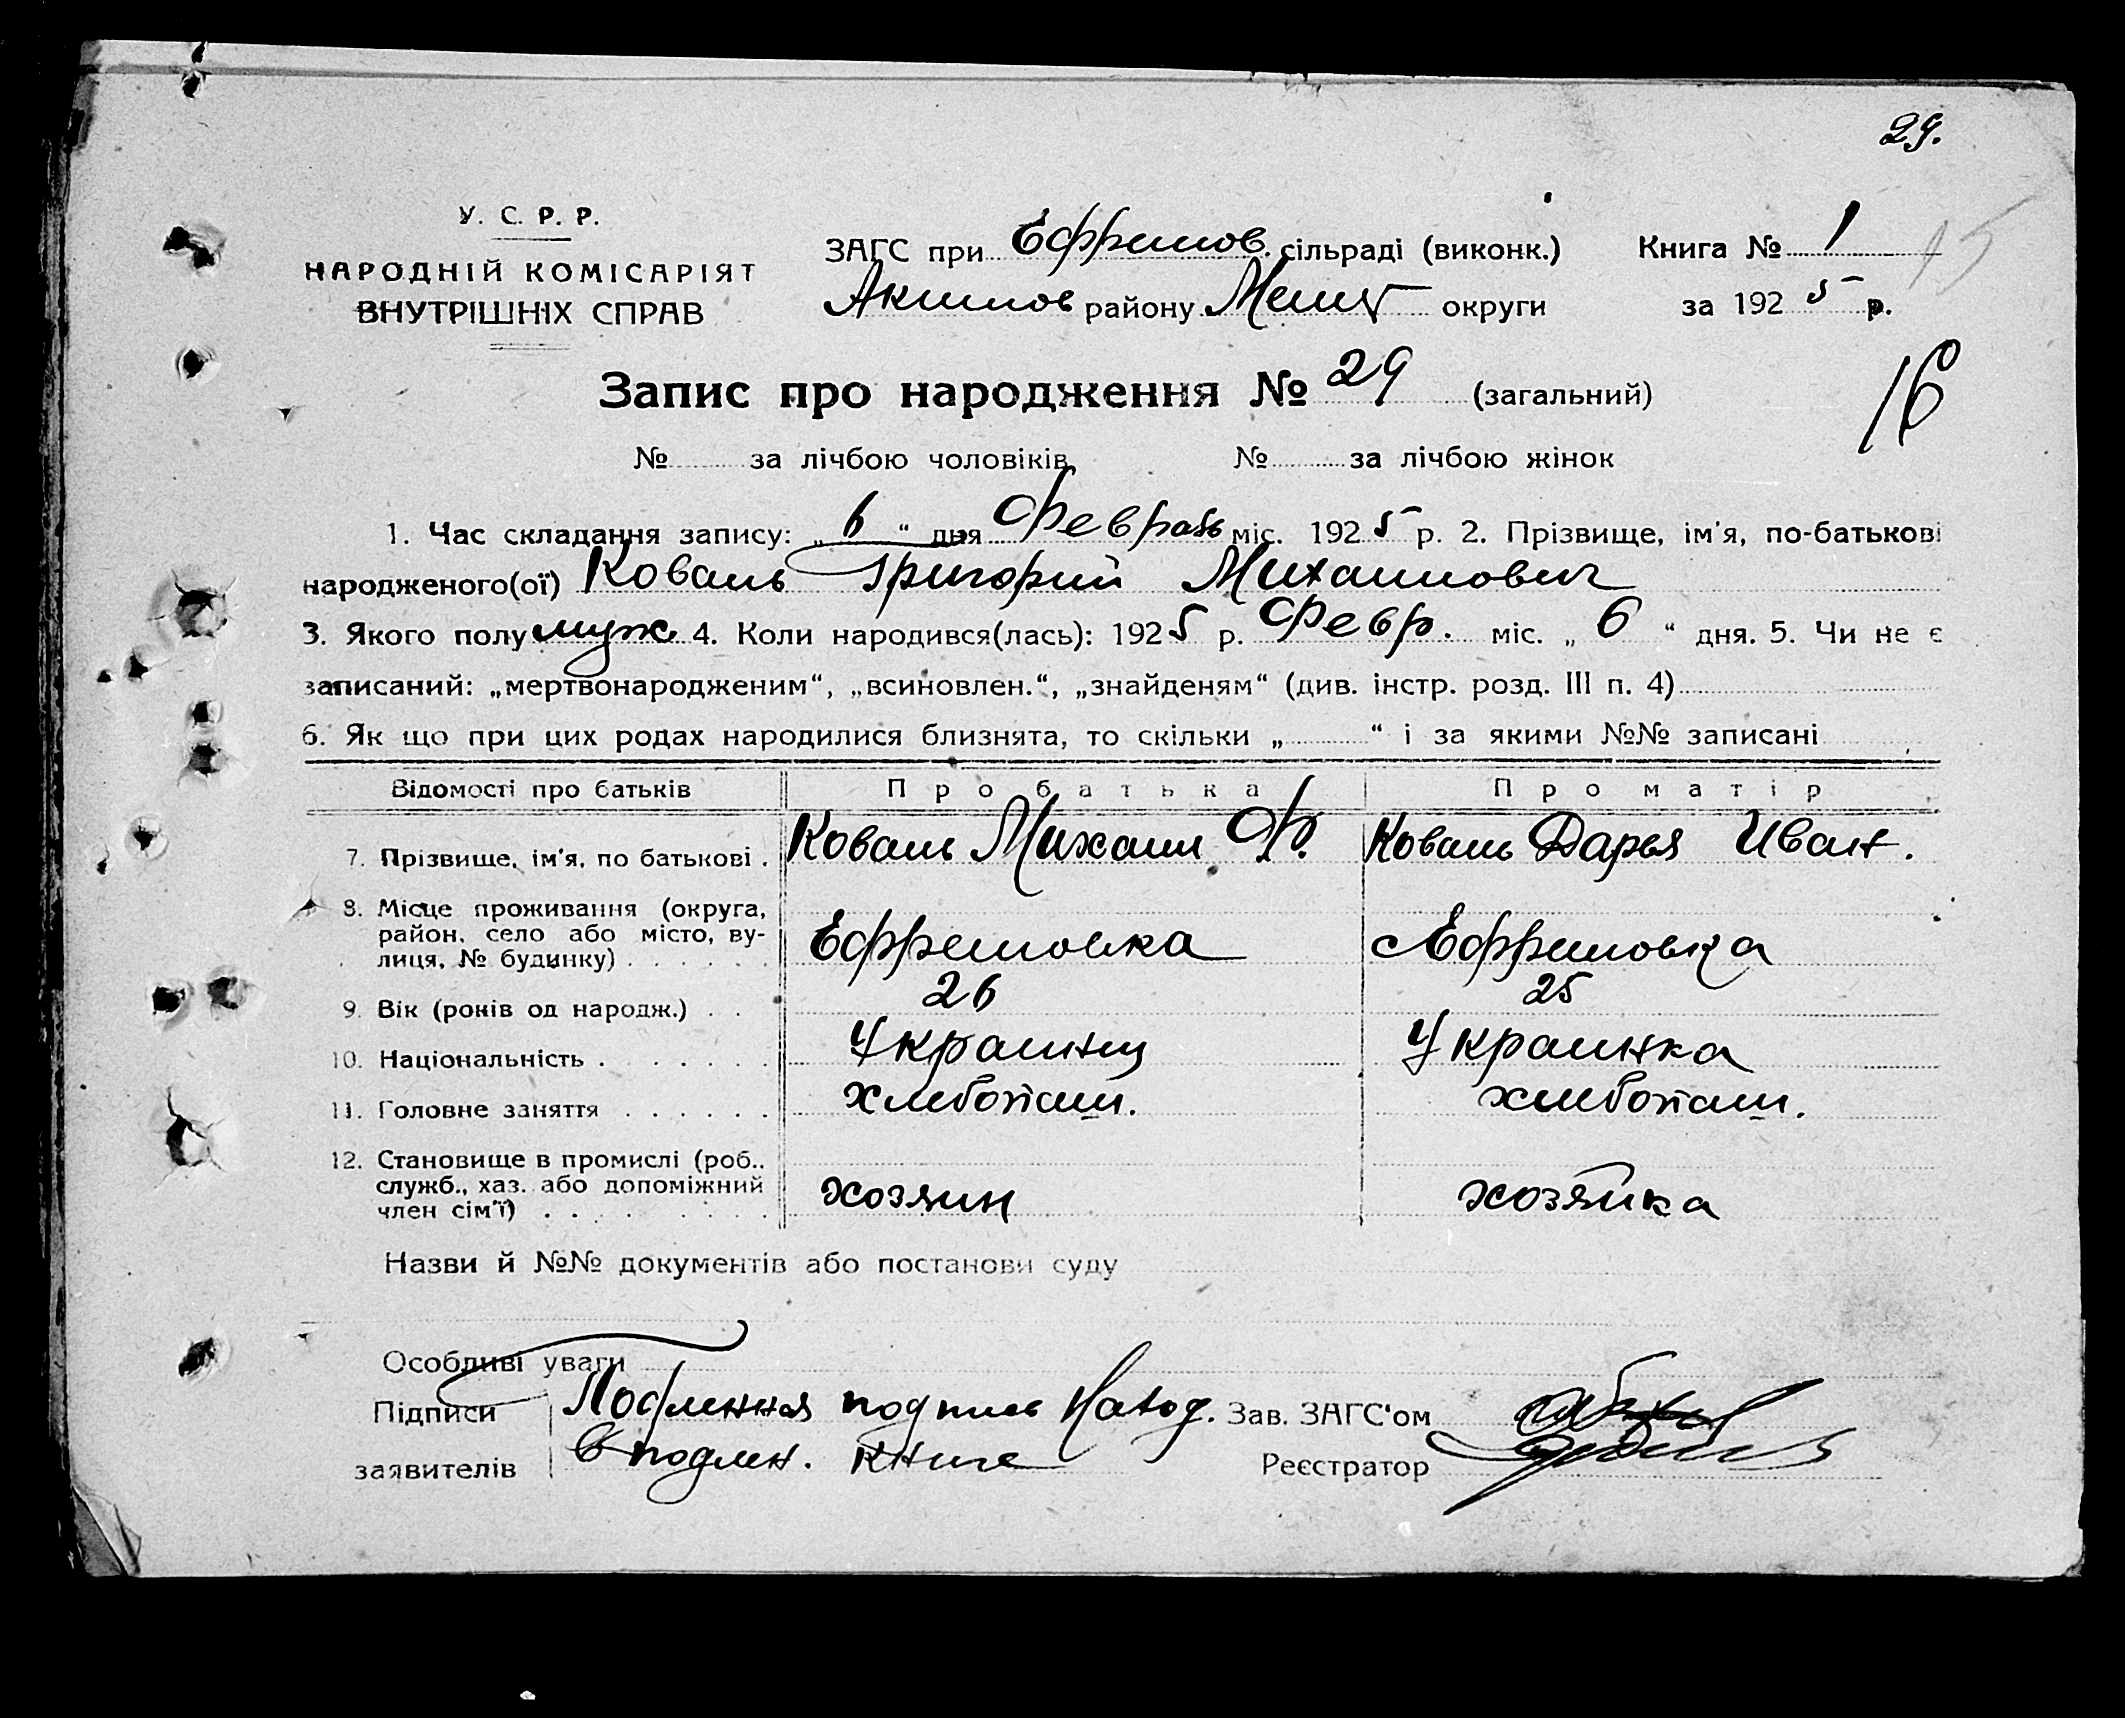 29.
У. С. Р. Р.
НАРОДНІЙ КОМІСАРІЯТ
ВНУТРІШНІХ СПРАВ
ЗАГС при Ефремов. сільраді (виконк.)
Акимов району Мелит округи
Книга № 1
15
за 1925 р.
Запис про народження № 29 (загальний)
16
№ за лічбою чоловіків № за лічбою жінок
1. Час складання запису: „ 6 “ дня Февраль міс. 1925 р. 2. Прізвище, ім'я, по-батькові
народженого(ої) Коваль Григорий Михаилович
3. Якого полу муж. 4. Коли народився(лась): 1925 р. Февр. міс. „ 6 “ дня. 5. Чи не є
записаний: „мертвонародженим“, „всиновлен.“, „знайденям“ (див. інстр. розд. III п. 4)
6. Як що при цих родах народилися близнята, то скільки „ “ і за якими №№ записані
Відомості про батьків Про батька Про матір
7. Прізвище, ім'я, по батькові . Коваль Михаил Ф. Коваль Дарья Иван.
8. Місце проживання (округа,
район, село або місто, ву-
лиця, № будинку) . . . . . . Ефремовка Ефремовка
9. Вік (років од народж.) . . 26 25
10. Національність . . . . . . Украинец Украинка
11. Головне заняття . . . . . . хлебопаш. хлебопаш.
12. Становище в промислі (роб..
служб., хаз. або допоміжний
член сім'ї) . . . . . . . . хозяин хозяйка
Назви й №№ документів або постанови суду
Особливі уваги
Підписи Подлинная подпись наход. Зав. ЗАГС'ом
заявителів в подлин. книге Реєстратор